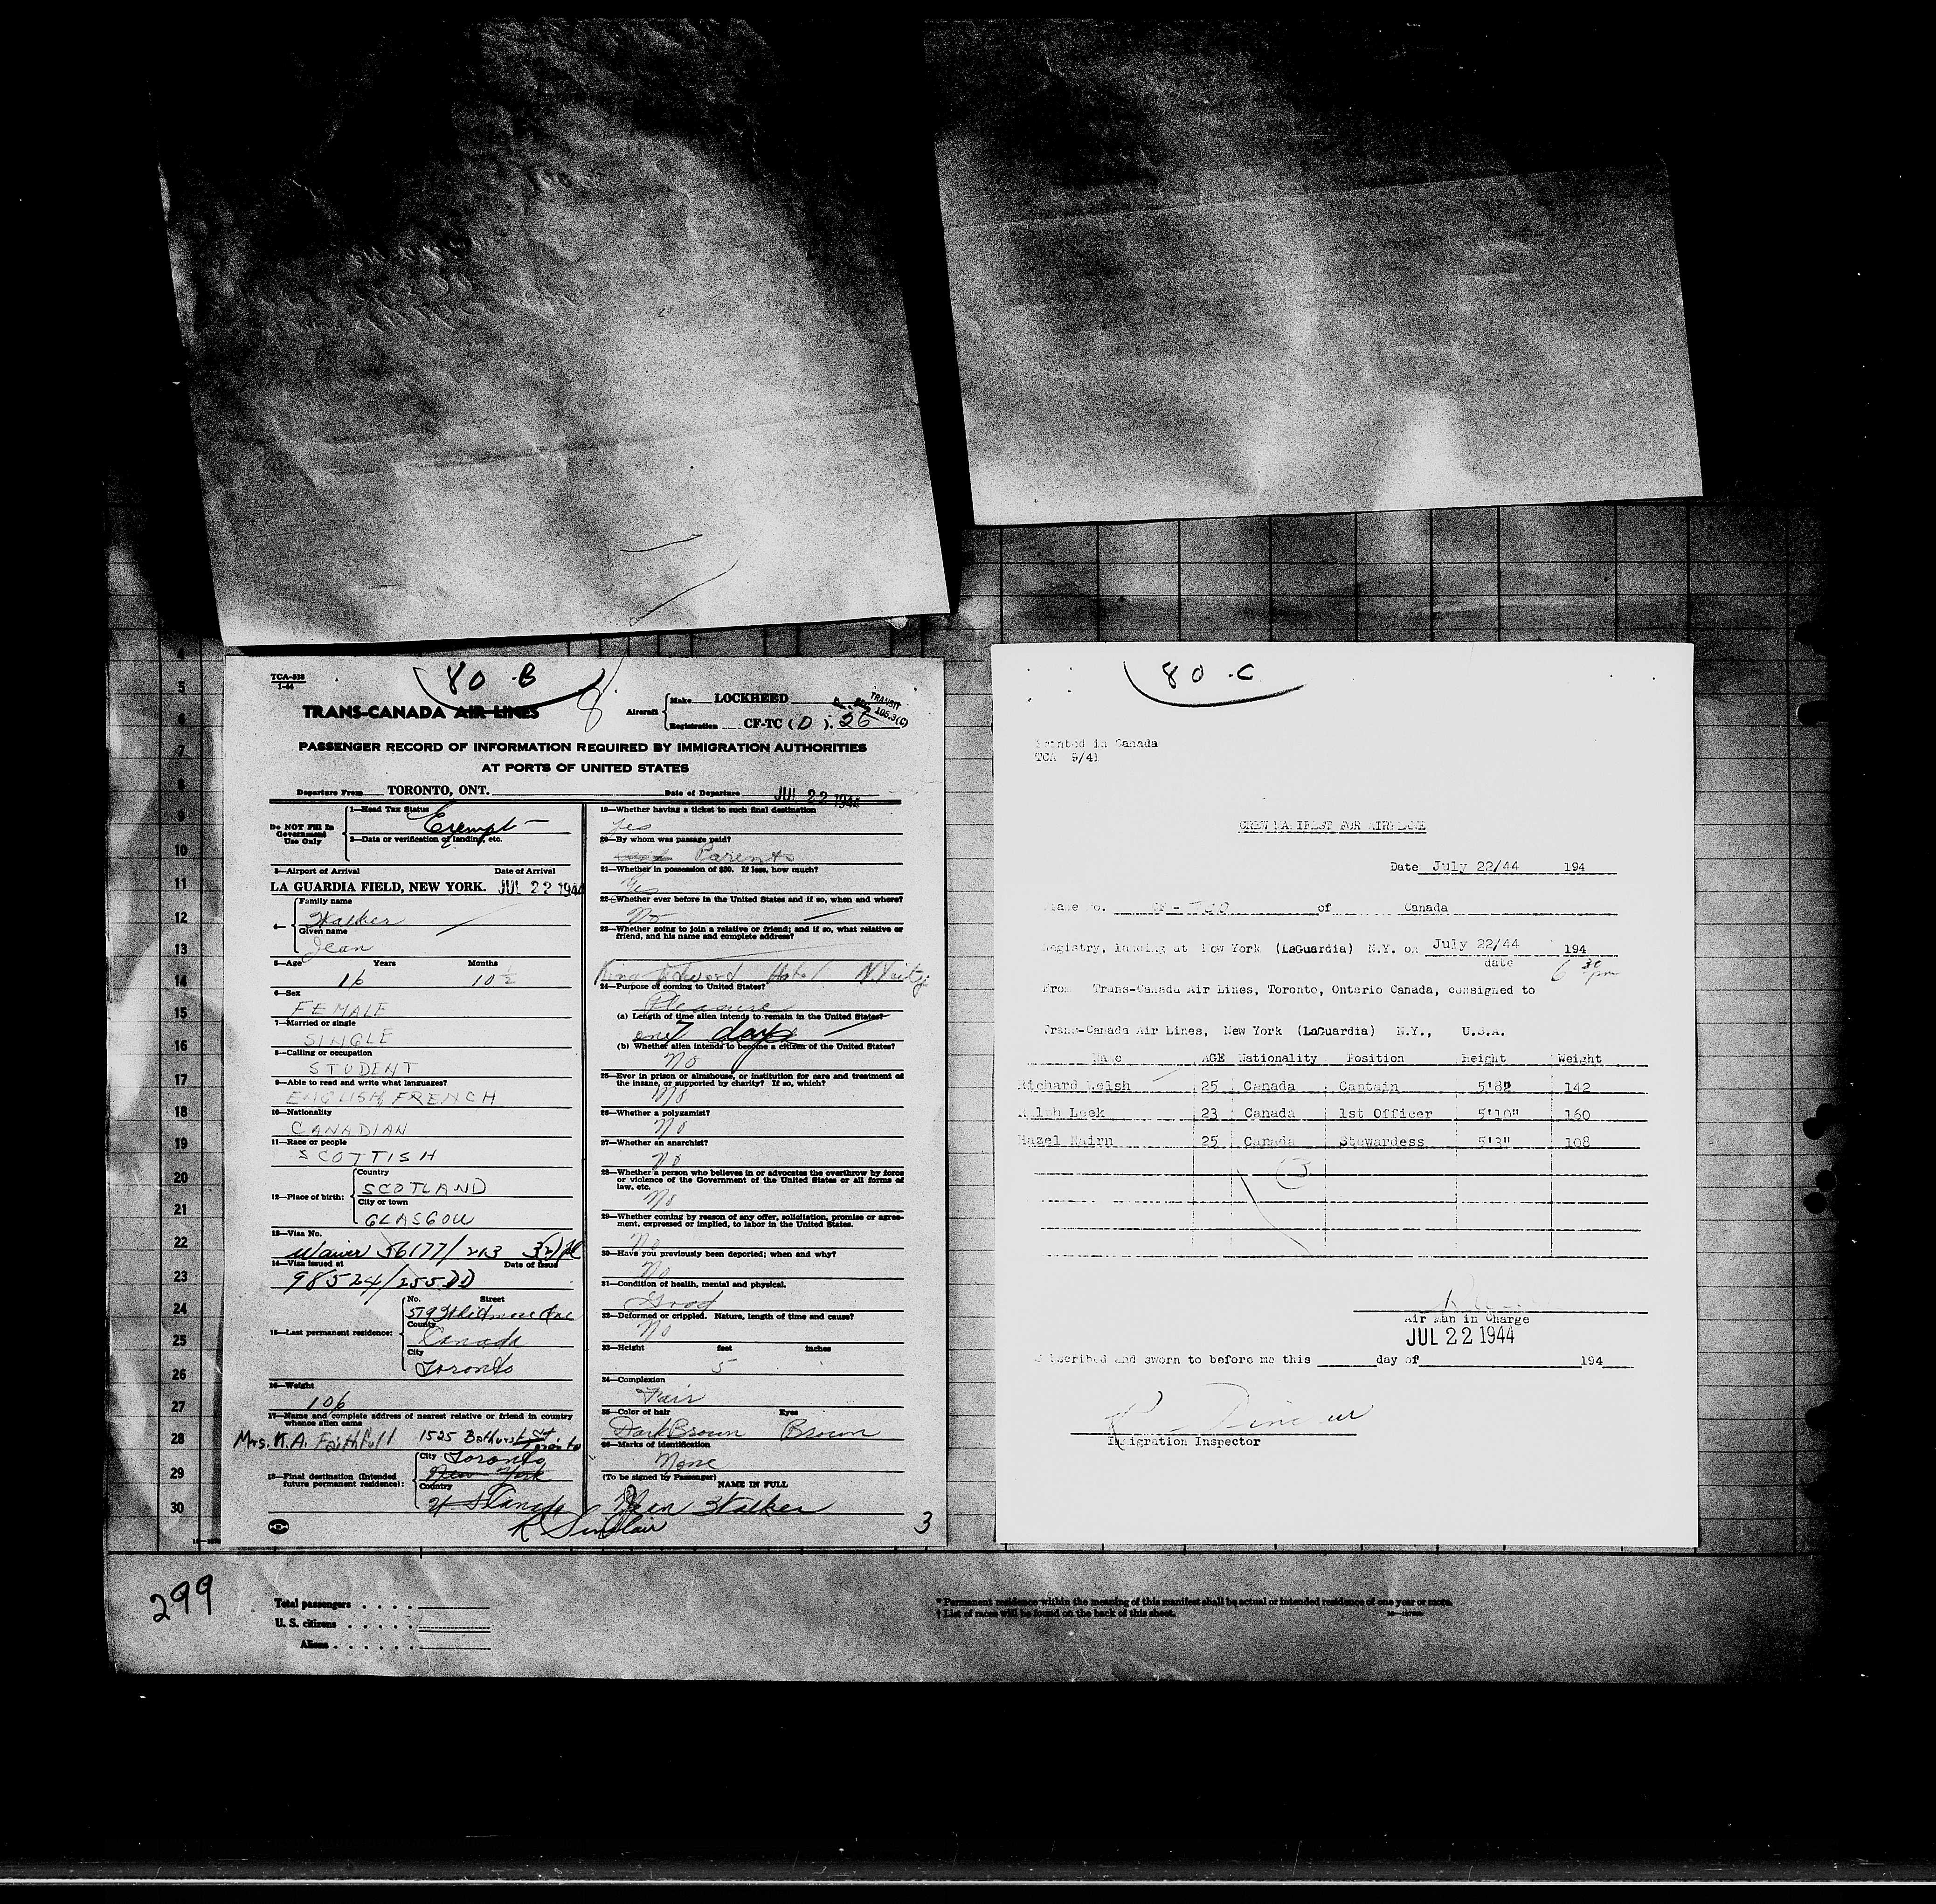 80-B
TCA-518
1-44
TRANS-CANADA AIR LINES
8
Aircraft
Make LOCKHEED
Registration CF-TC ( D ). 26
TRANSIT
105.3(C)
PASSENGER RECORD OF INFORMATION REQUIRED BY IMMIGRATION AUTHORITIES
AT PORTS OF UNITED STATES
Departure From TORONTO, ONT. Date of Departure JUL 22 1944
Do NOT Fill In Government Use Only
1—Head Tax Status
Exempt
2—Data or verification of landing, etc.
3—Airport of Arrival Date of Arrival
LA GUARDIA FIELD, NEW YORK. JUL 22 1944
4—
Family name
Stalker
Given name
Jean
5—Age Years Months
16 10½
6—Sex
FEMALE
7—Married or single
SINGLE
8—Calling or occupation
STUDENT
9—Able to read and write what languages?
ENGLISH, FRENCH
10—Nationality
CANADIAN
11—Race or people
SCOTTISH
12—Place of birth:
Country
SCOTLAND
City or town
GLASGOW
13—Visa No.
Waiver 56177/213
14—Visa issued at Date of Issue
98524/255
15—Last permanent residence:
No. Street
519
County
Canada
City
Toronto
16—Weight
106
17—Name and complete address of nearest relative or friend in country
whence alien came
Mrs. K.A. Faithfull 1525 Bathurst St Toronto
18—Final destination (Intended
future permanent residence):
City Toronto
New York
Country
U.S. Canada
19—Whether having a ticket to such final destination
Yes
20—By whom was passage paid?
Parents
21—Whether in possession of $50. If less, how much?
Yes
22—Whether ever before in the United States and if so, when and where?
No
23—Whether going to join a relative or friend; and if so, what relative or
friend, and his name and complete address?
King Edward Hotel N.Y city
24—Purpose of coming to United States?
Pleasure
(a) Length of time alien intends to remain in the United States?
7 days
(b) Whether alien intends to become a citizen of the United States?
No
25—Ever in prison or almshouse, or institution for care and treatment of
the insane, or supported by charity? If so, which?
No
26—Whether a polygamist?
No
27—Whether an anarchist?
No
28—Whether a person who believes in or advocates the overthrow by force
or violence of the Government of the United States or all forms of
law, etc.
No
29—Whether coming by reason of any offer, solicitation, promise or agree-
ment, expressed or implied, to labor in the United States.
No
30—Have you previously been deported; when and why?
No
31—Condition of health, mental and physical.
Good
32—Deformed or crippled. Nature, length of time and cause?
No
33—Height feet inches
5
34—Complexion
Fair
35—Color of hair Eyes
Dark Brown Brown
36—Marks of identification
None
(To be signed by Passenger)
NAME IN FULL
Jean Stalker
R Sinclair
3
80-C
Printed in Canada
TCA 9/41
CREW MANIFEST FOR AIRPLANE
Date July 22/44 194
Plane No. CF - of Canada
Registry, landing at New York (LaGuardia) N.Y. on July 22/44 194
date
6 30 pm
From Trans-Canada Air Lines, Toronto, Ontario Canada, consigned to
Trans-Canada Air Lines, New York (LaGuardia) N.Y., U.S.A.
Name AGE Nationality Position Height Weight
Richard Welsh 25 Canada Captain 5'8" 142
Ralph Leek 23 Canada 1st Officer 5'10" 160
Hazel Nairn 25 Canada Stewardess 5'3" 108
3
Air Man in Charge
JUL 22 1944
Subscribed and sworn to before me this day of 194
R Sinclair
Immigration Inspector
4
5
6
7
8
9
10
11
12
13
14
15
16
17
18
19
20
21
22
23
24
25
26
27
28
29
30
299
Total passengers
U. S. citizens
Aliens
* Permanent residence within the meaning of this manifest shall be actual or intended residence of one year or more.
† List of races will be found on the back of this sheet.